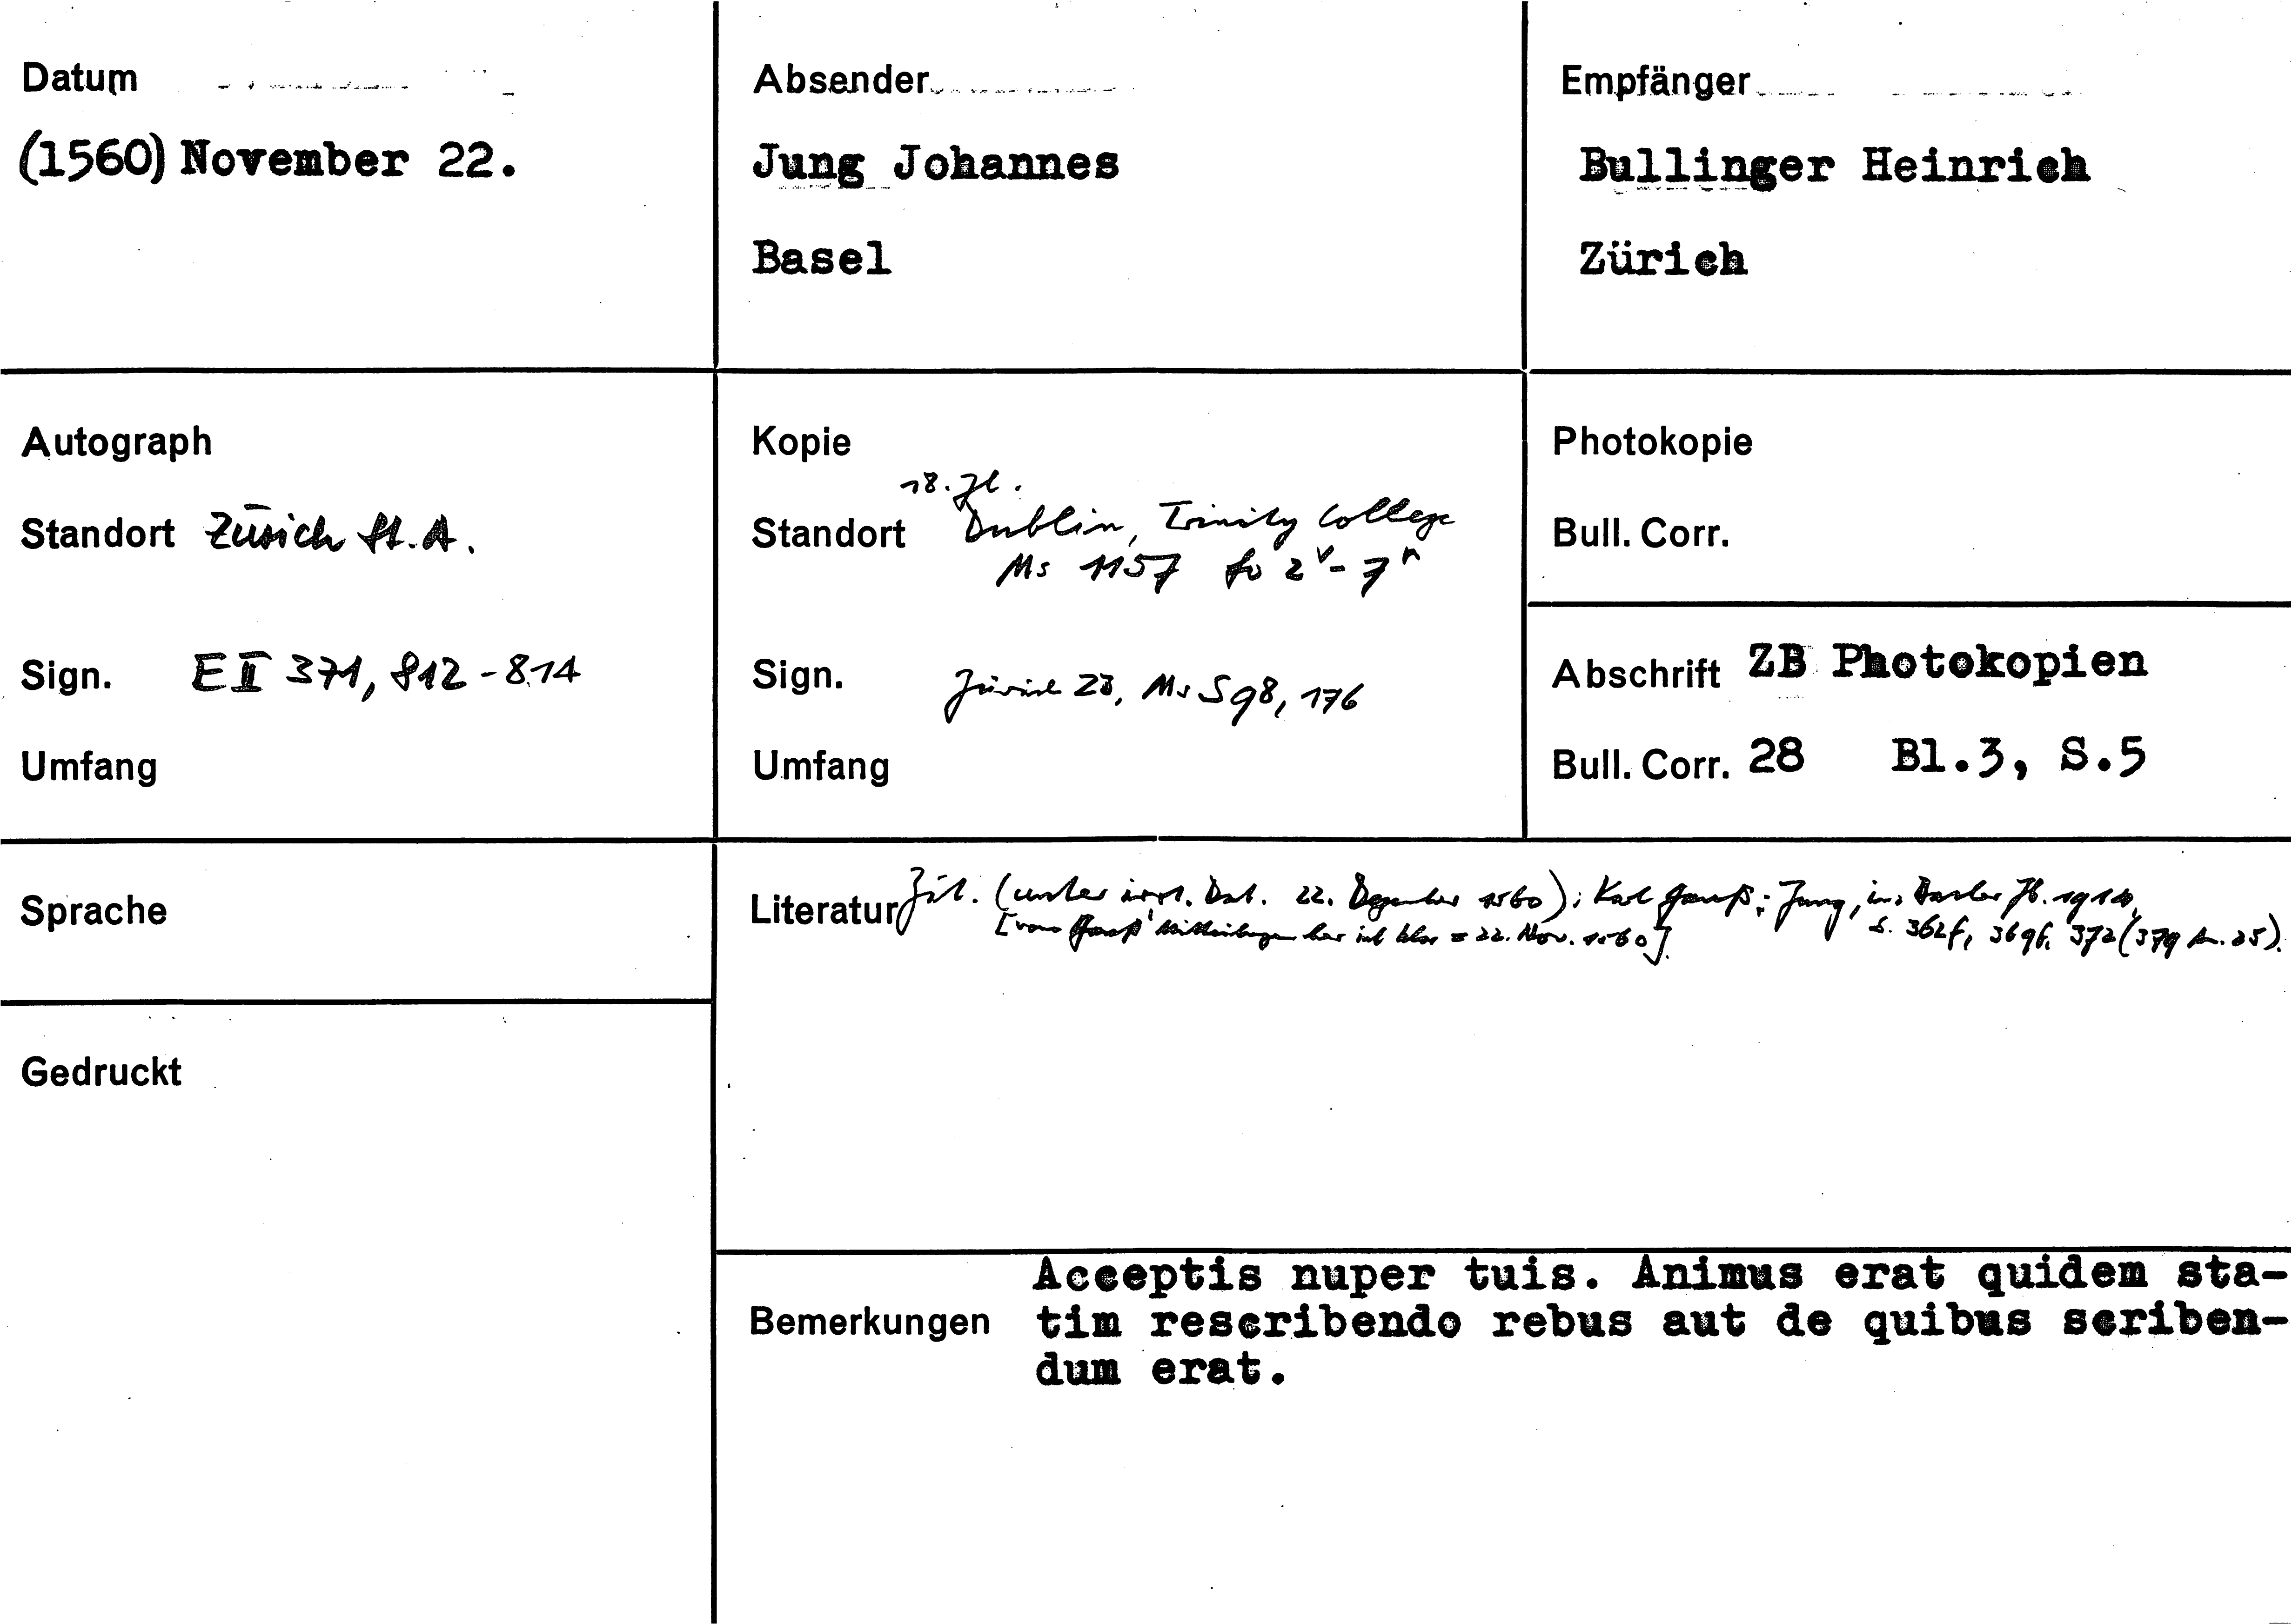 Datum
(1560) November 22.
Absender
Jung Johannes
Basel
Empfänger
Bullinger Heinrich
Zürich
Autograph
Standort Zürich St.A.
Sign. E II 371, 812-814
Umfang
Kopie
18. Jh.
Standort Dublin, Trinity College
Ms 1157 fo 2v - 7r
Sign. Zürich ZB, Ms S 98, 176
Umfang
Photokopie
Bull. Corr.
Abschrift ZB Photokopien
Bull. Corr. 28 Bl.3, S.5
Sprache
Literatur Zit. (unter irrt. Dat. 22. Dezember 1560); Karl Gauß: Jung, in: Basler Jb. 1910,
S. 362f, 369f. 372 (379 A. 25).
[von Gauß' Mitteilungen her ist klar = 22. Nov. 1560].
Gedruckt
Bemerkungen
Acceptis nuper tuis. Animus erat quidem sta-
tim rescribendo rebus aut de quibus scriben-
dum erat.